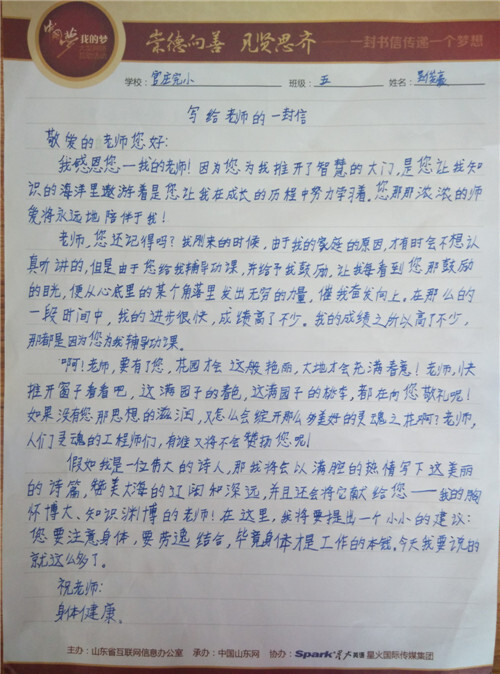 中国梦 我的梦
崇德向善 见贤思齐
一封书信传递一个梦想
学校：官庄完小 班级：五 姓名：
写给老师的一封信
敬爱的老师您好：
我感恩您—我的老师！因为您为我推开了智慧的大门，是您让我知
识的海洋里遨游着是您让我在成长的历程中努力学习着。您那那浓浓的师
爱将永远地陪伴于我！
老师，您还记得吗？我刚来的时候，由于我的家庭的原因，才有时会不想认
真听讲的，但是由于您给我辅导功课，并给予我鼓励，让我每看到您那鼓励
的目光，便从心底里的某个角落里发出无穷的力量，催我奋发向上。在那么的
一段时间中，我的进步很快，成绩高了不少。我的成绩之所以高了不少，
那都是因为您为我辅导功课。
啊！老师，要有了您，花园才会这般艳丽，大地才会充满春意！老师，快
推开窗子看看吧，这满园子的春色，这满园子的桃李，都在向您敬礼呢！
如果没有您那思想的滋润，又怎么会绽开那么多美好的灵魂之花啊？老师，
人们了灵魂的工程师们，有谁又将不会赞扬您呢！
假如我是一位伟大的诗人，那我将会以满腔的热情写下这美丽
的诗篇，赞美大海的辽阔和深远，并且还会将它献给您——我的胸
怀博大、知识渊博的老师！在这里，我将要提出一个小小的建议：
您要注意身体，要劳逸结合，毕竟身体才是工作的本钱。今天我要说的
就这么多了。
祝老师：
身体健康。
主办：山东省互联网信息办公室 承办：中国山东网 协办：Spark 星火英语 星火国际传媒集团